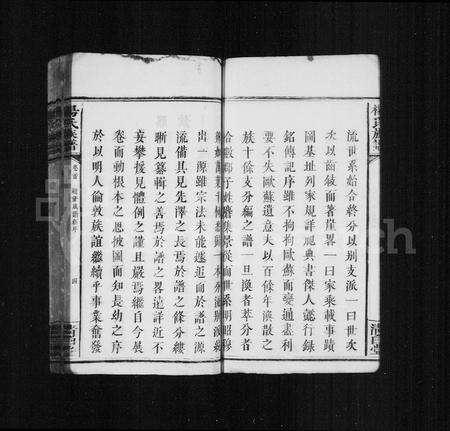 流世系結合終分以別支派一曰世次
次以齒敘而著年月一曰家乘載事蹟
圖基址列家規詳祀典書傑人懿行錄
銘傳記序雖不拘拘歐蘇而變通盡利
要不失歐蘇遺意夫以百餘年渙散之
族十餘支分編之譜一旦渙者萃分者
合
出一源雖宗法未能遽逭而於譜之源
流備具見先澤之長焉於譜之條分縷
晰見纂輯之善焉於譜之畧遠詳近不
妄攀援見體例之謹且嚴焉繼自今展
卷而動根本之思披圖而知長幼之序
於以明人倫敦族誼繼續乎事業奮發
楊氏族譜
卷首
四
清白堂